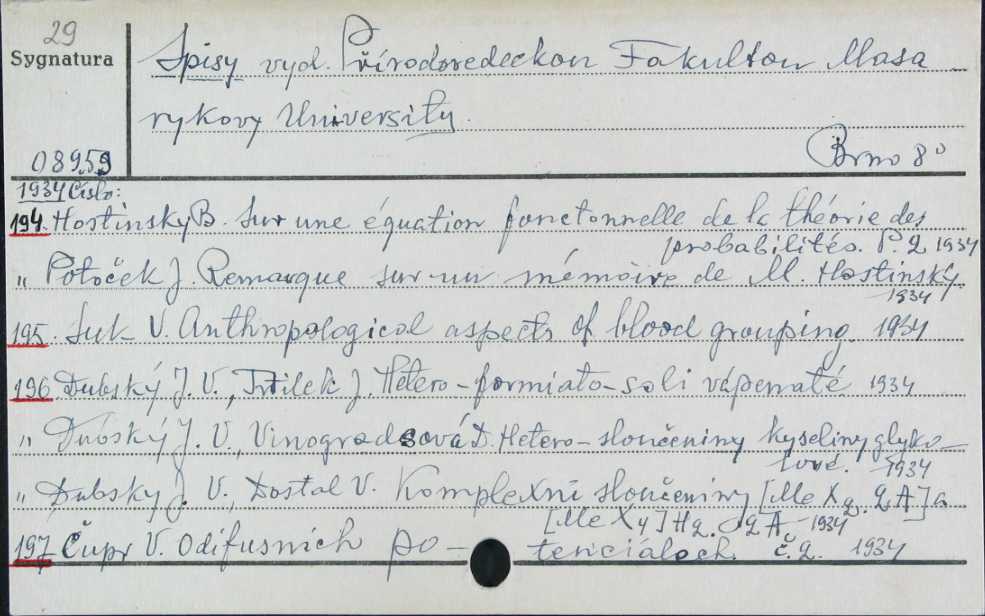 29
Sygnatura
08959
Spisy vyd. Přírodovedeckou Fakultou Masa
rykovy University.
Brno 8°
1934 Číslo:
194. Hostinsky B. Sur une équation fonctonnelle de la théorie des
probabilités. P. 2 1934
" Potoček J. Remarque sur un mémoire de M. Hostinský
1934
195. Suk V. Anthropological aspects of blood grouping. 1934
196 Dubský J. V., Trtilek J. Hetero-formiato-soli vápenaté 1934
" Dubský J. V., Vinogradsová D. Hetero-sloučeniny kyseliny glyko-
lové. 1934
" Dubsky J. V., Dostal V. Komplexní sloučeniny [Me X2. 2 A] a
[Me X4] H2. 2 A 1934
197 Čupr V. O difusních po-tenciálech. č. 2. 1934